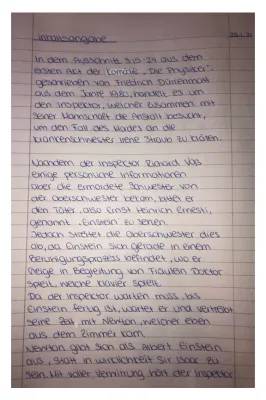 Inhaltsangabe
In dem Ausschnitt S.15-24 aus dem
ersten Akt der Komödie „Die Physiker",
geschrieben von Friedrich Dürrenmatt
aus dem Jahre 1980, handelt es um
den Inspektor, welcher zusammen mit
seiner Mannschaft die Anstalt besucht,
um den Fall des Mordes an die
Krankenschwester Irene Straub zu klären.
Nachdem der Inspektor Richard Voß
einige persönliche Informationen
über die ermordete Schwester von
der Oberschwester bekam, bittet er
den Täter, also Ernst Heinrich Ernesti,
genannt Einstein, zu sehen.
Jedoch streitet die Oberschwester dies
ab, da Einstein sich gerade in einem
Beruhigungsprozess befindet, wo er
Geige in Begleitung von Fräulein Doktor
spielt, welche Klavier spielt.
Da der Inspektor warten muss, bis
Einstein fertig ist, wartet er und vertreibt
seine Zeit mit Newton, welcher eben
aus dem Zimmer kam.
Newton gibt sich als Albert Einstein
aus, statt in Wirklichkeit Sir Isaac zu
sein. Mit voller Verwirrung hört der Inspektor